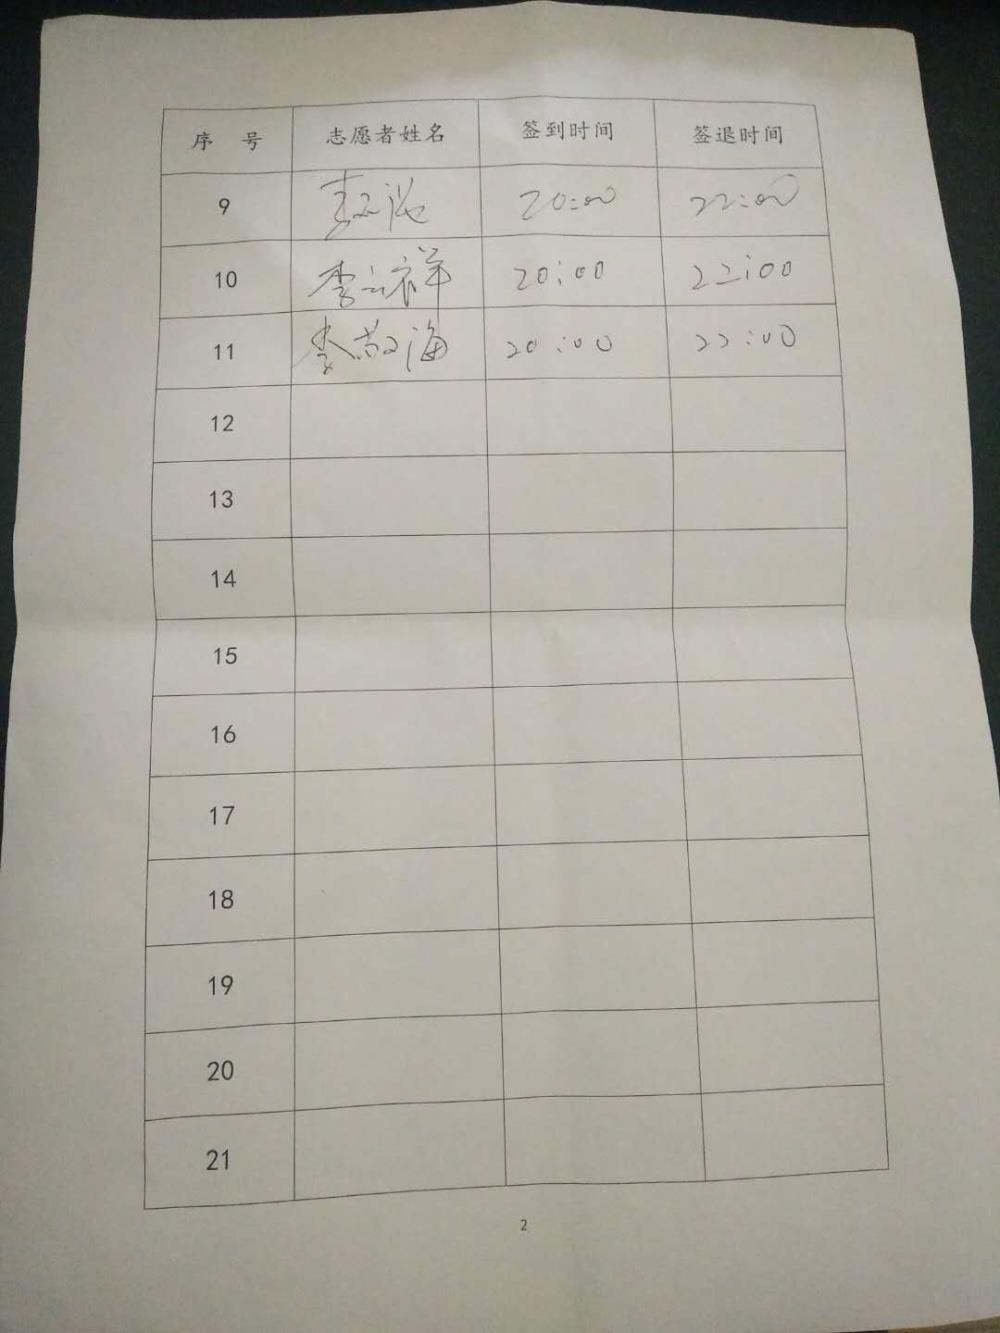 序 号 志愿者姓名 签到时间 签退时间
9 20:00 22:00
10 李云祥 20:00 22:00
11 李敬海 20:00 22:00
12
13
14
15
16
17
18
19
20
21
2